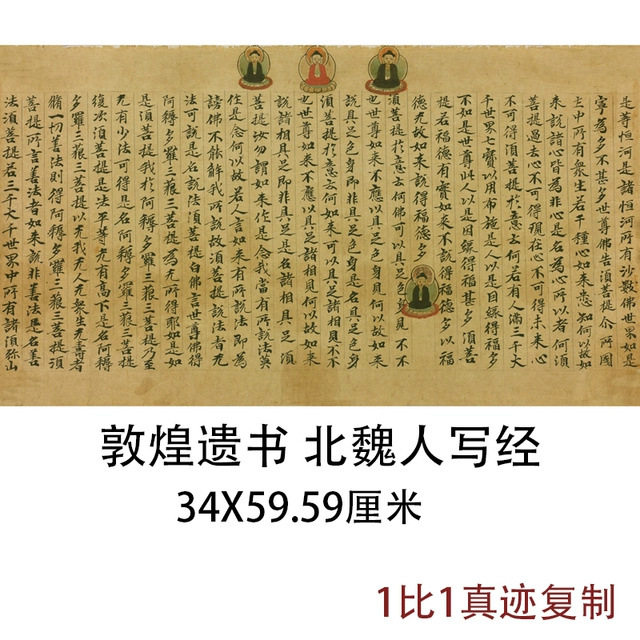 是等恒河是諸恒河所有沙數佛世界如是
寧為多不甚多世尊佛告須菩提介所國
土中所有衆生若干種心如來悉知何以故如
來說諸心皆為非心是名為心所以者何須
菩提過去心不可得現在心不可得未來心
不可得須菩提於意云何若有人滿三千大
千世界七寶以用布施是人以是因緣得福多
不如是世尊此人以是因緣得福甚多須菩
提若福德有實如來不說得福德多以福
德无故如來說得福德多
須菩提於意云何佛可以具足色身見不不
也世尊如來不應以具足色身見何以故如來
說具足色身即非具足色身是名具足色身
須菩提於意云何如來可以具足諸相見不不
也世尊如來不應以具足諸相見何以故如來
說諸相具足即非具足是名諸相具足須
菩提汝勿謂如來作是念我當有所說法莫
作是念何以故若人言如來有所說法即為
謗佛不能解我所說故須菩提說法者无
法可說是名說法須菩提白佛言世尊佛得
阿耨多羅三藐三菩提為无所得耶如是如
是須菩提我於阿耨多羅三藐三菩提乃至
无有少法可得是名阿耨多羅三藐三菩提
復次須菩提是法平等无有高下是名阿耨
多羅三藐三菩提以无我无人无衆生无壽者
脩一切善法則得阿耨多羅三藐三菩提須
菩提所言善法者如來說非善法是名善
法須菩提若三千大千世界中所有諸須弥山
敦煌遗书 北魏人写经
34X59.59厘米
1比1真迹复制